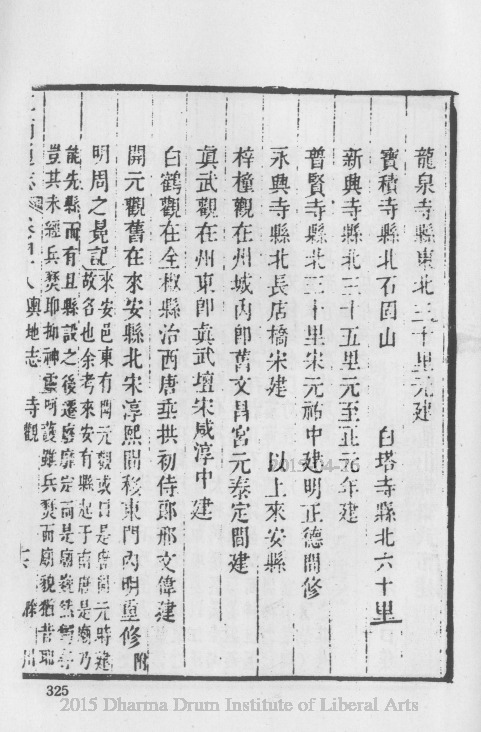 龍泉寺縣東北三十里元建
寶積寺縣北石固山　白塔寺縣北六十里
新興寺縣北三十五里元至正元年建
普賢寺縣北三十里宋元祐中建明正德間修
永興寺縣北長店橋宋建　以上來安縣
梓橦觀在州城內卽舊文昌宮元泰定間建
眞武觀在州東卽眞武壇宋咸淳中建
白鶴觀在全椒縣治西唐垂拱初侍郎邢文偉建
開元觀舊在來安縣北宋淳熙間移東門內明重修附
明周之晁記來安邑東有開元觀或曰是唐開元時建
故名也余考來安有縣起于南唐是廟乃
能先縣而有且縣設之後遷廢靡定而是廟巍然
豈其未經兵燹耶抑神靈呵護雖兵燹而廟貌猶昔
輿地志　寺觀
325
2015 Dharma Drum Institute of Liberal Arts